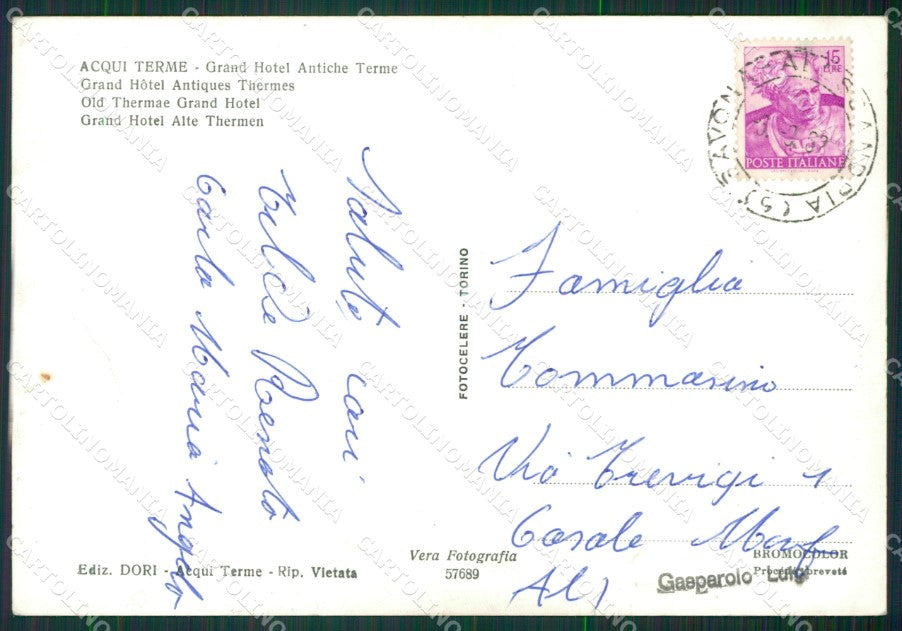 ACQUI TERME - Grand Hotel Antiche Terme
Grand Hôtel Antiques Thermes
Old Thermae Grand Hotel
Grand Hotel Alte Thermen
15
LIRE
POSTE ITALIANE
SAVONA
ALESSANDRIA (S)
Saluti cari
Felice Renato
Carla Maria Angelo
FOTOCELERE - TORINO
Famiglia
Tommasino
Via Trevigi 1
Casale Monf
Al)
Vera Fotografia
57689
BROMOCOLOR
Procédé breveté
Ediz. DORI - Acqui Terme - Rip. Vietata
Gasparolo Luigi
CARTOLINOMANIA